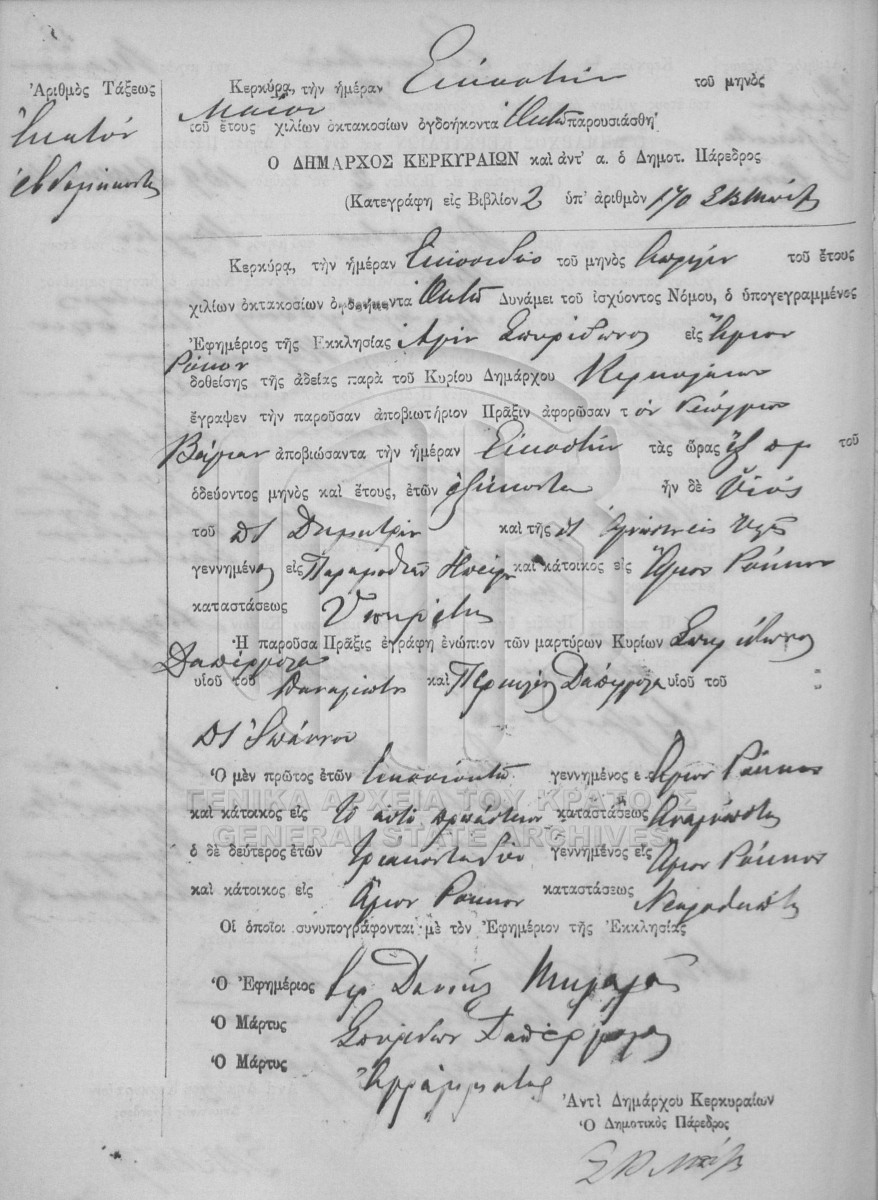 Ἀριθμὸς Τάξεως
Ἑκατόν
ἑβδομήκοντα
Κερκύρᾳ, τὴν ἡμέραν Εἰκοστήν τοῦ μηνὸς
Μαΐου
τοῦ ἔτους χιλίων ὀκτακοσίων ὀγδοήκοντα Ὀκτώ παρουσιάσθη
Ο ΔΗΜΑΡΧΟΣ ΚΕΡΚΥΡΑΙΩΝ καὶ ἀντ' α. ὁ Δημοτ. Πάρεδρος
(Κατεγράφη εἰς Βιβλίον 2 ὑπ' ἀριθμὸν 170
Κερκύρᾳ, τὴν ἡμέραν Εἰκοσιδύο τοῦ μηνὸς Ἀπριλίου τοῦ ἔτους
χιλίων ὀκτακοσίων ὀγδοήκοντα Ὀκτώ Δυνάμει τοῦ ἰσχύοντος Νόμου, ὁ ὑπογεγραμμένος
Ἐφημέριος τῆς Ἐκκλησίας Ἁγίου Σπυρίδωνος εἰς Ἅγιον
Ρόκκον
δοθείσης τῆς ἀδείας παρὰ τοῦ Κυρίου Δημάρχου Κερκυραίων
ἔγραψεν τὴν παροῦσαν ἀποβιωτήριον Πρᾶξιν ἀφορῶσαν τ ὸν Γεώργιον
ἀποβιώσαντα τὴν ἡμέραν Εἰκοστήν τὰς ὥρας ἕξ π μ τοῦ
ὁδεύοντος μηνὸς καὶ ἔτους, ἐτῶν ἑξήκοντα ἦν δὲ Υἱός
τοῦ Δημητρίου καὶ τῆς
γεννημένος εἰς Παραμυθιάν Ἠπείρου καὶ κάτοικος εἰς Ἅγιον Ρόκκον
καταστάσεως Ὑπηρέτης
Ἡ παροῦσα Πρᾶξις ἐγράφη ἐνώπιον τῶν μαρτύρων Κυρίων Σπυρίδωνος
Δαπέργολα
υἱοῦ τοῦ Παναγιώτη καὶ Περικλῆ Δαπέργολα υἱοῦ τοῦ
Ἰωάννου
Ὁ μὲν πρῶτος ἐτῶν Εἰκοσιοκτώ γεννημένος ε Ἅγιον Ρόκκον
καὶ κάτοικος εἰς Τὸ αὐτὸ προάστειον καταστάσεως Ἀναγνώστης
ὁ δὲ δεύτερος ἐτῶν τριακονταδύο γεννημένος εἰς Ἅγιον Ρόκκον
καὶ κάτοικος εἰς Ἅγιον Ρόκκον καταστάσεως
Οἱ ὁποῖοι συνυπογράφονται μὲ τὸν Ἐφημέριον τῆς Ἐκκλησίας
Ὁ Ἐφημέριος Ἱερ Δανιήλ
Ὁ Μάρτυς Σπυρίδων Δαπέργολας
Ὁ Μάρτυς Ἀγράμματος
Ἀντὶ Δημάρχου Κερκυραίων
Ὁ Δημοτικὸς Πάρεδρος
ΓΕΝΙΚΑ ΑΡΧΕΙΑ ΤΟΥ ΚΡΑΤΟΥΣ
GENERAL STATE ARCHIVES